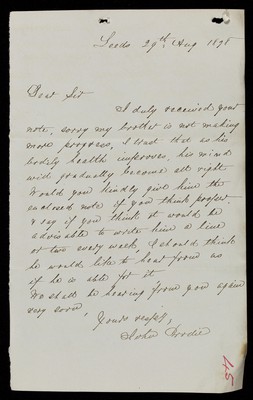 Leeds 29th Aug 1898
Dear Sir
I duly received your
note, sorry my brother is not making
more progress, I trust that as his
bodily health improves, his mind
will gradually become all right
Would you kindly give him the
enclosed note if you think proper,
& say if you think it would be
advisable to write him a line
or two every week, I should think
he would like to hear from us
if he is able for it
We shall be hearing from you again
very soon,
Yours respy,
John Brodie
45